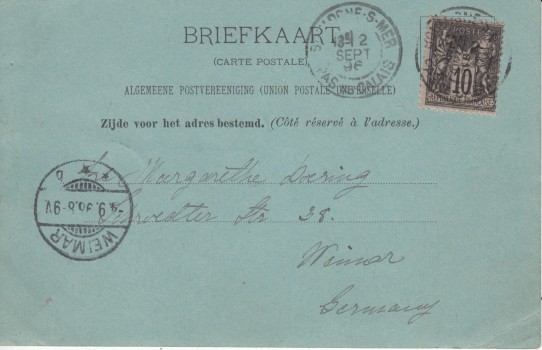 BRIEFKAART.
(CARTE POSTALE)
ALGEMEENE POSTVEREENIGING (UNION POSTALE UNIVERSELLE)
Zijde voor het adres bestemd. (Côté réservé à l'adresse.)
BOULOGNE-S-MER
2
SEPT
96
PAS DE CALAIS
10
Margarethe Doering
Str 38.
Weimar
Germany
4.9.96.8-9V.
WEIMAR